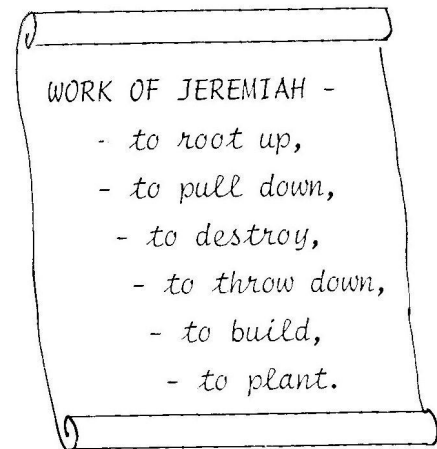 WORK OF JEREMIAH -
- to root up,
- to pull down,
- to destroy,
- to throw down,
- to build,
- to plant.